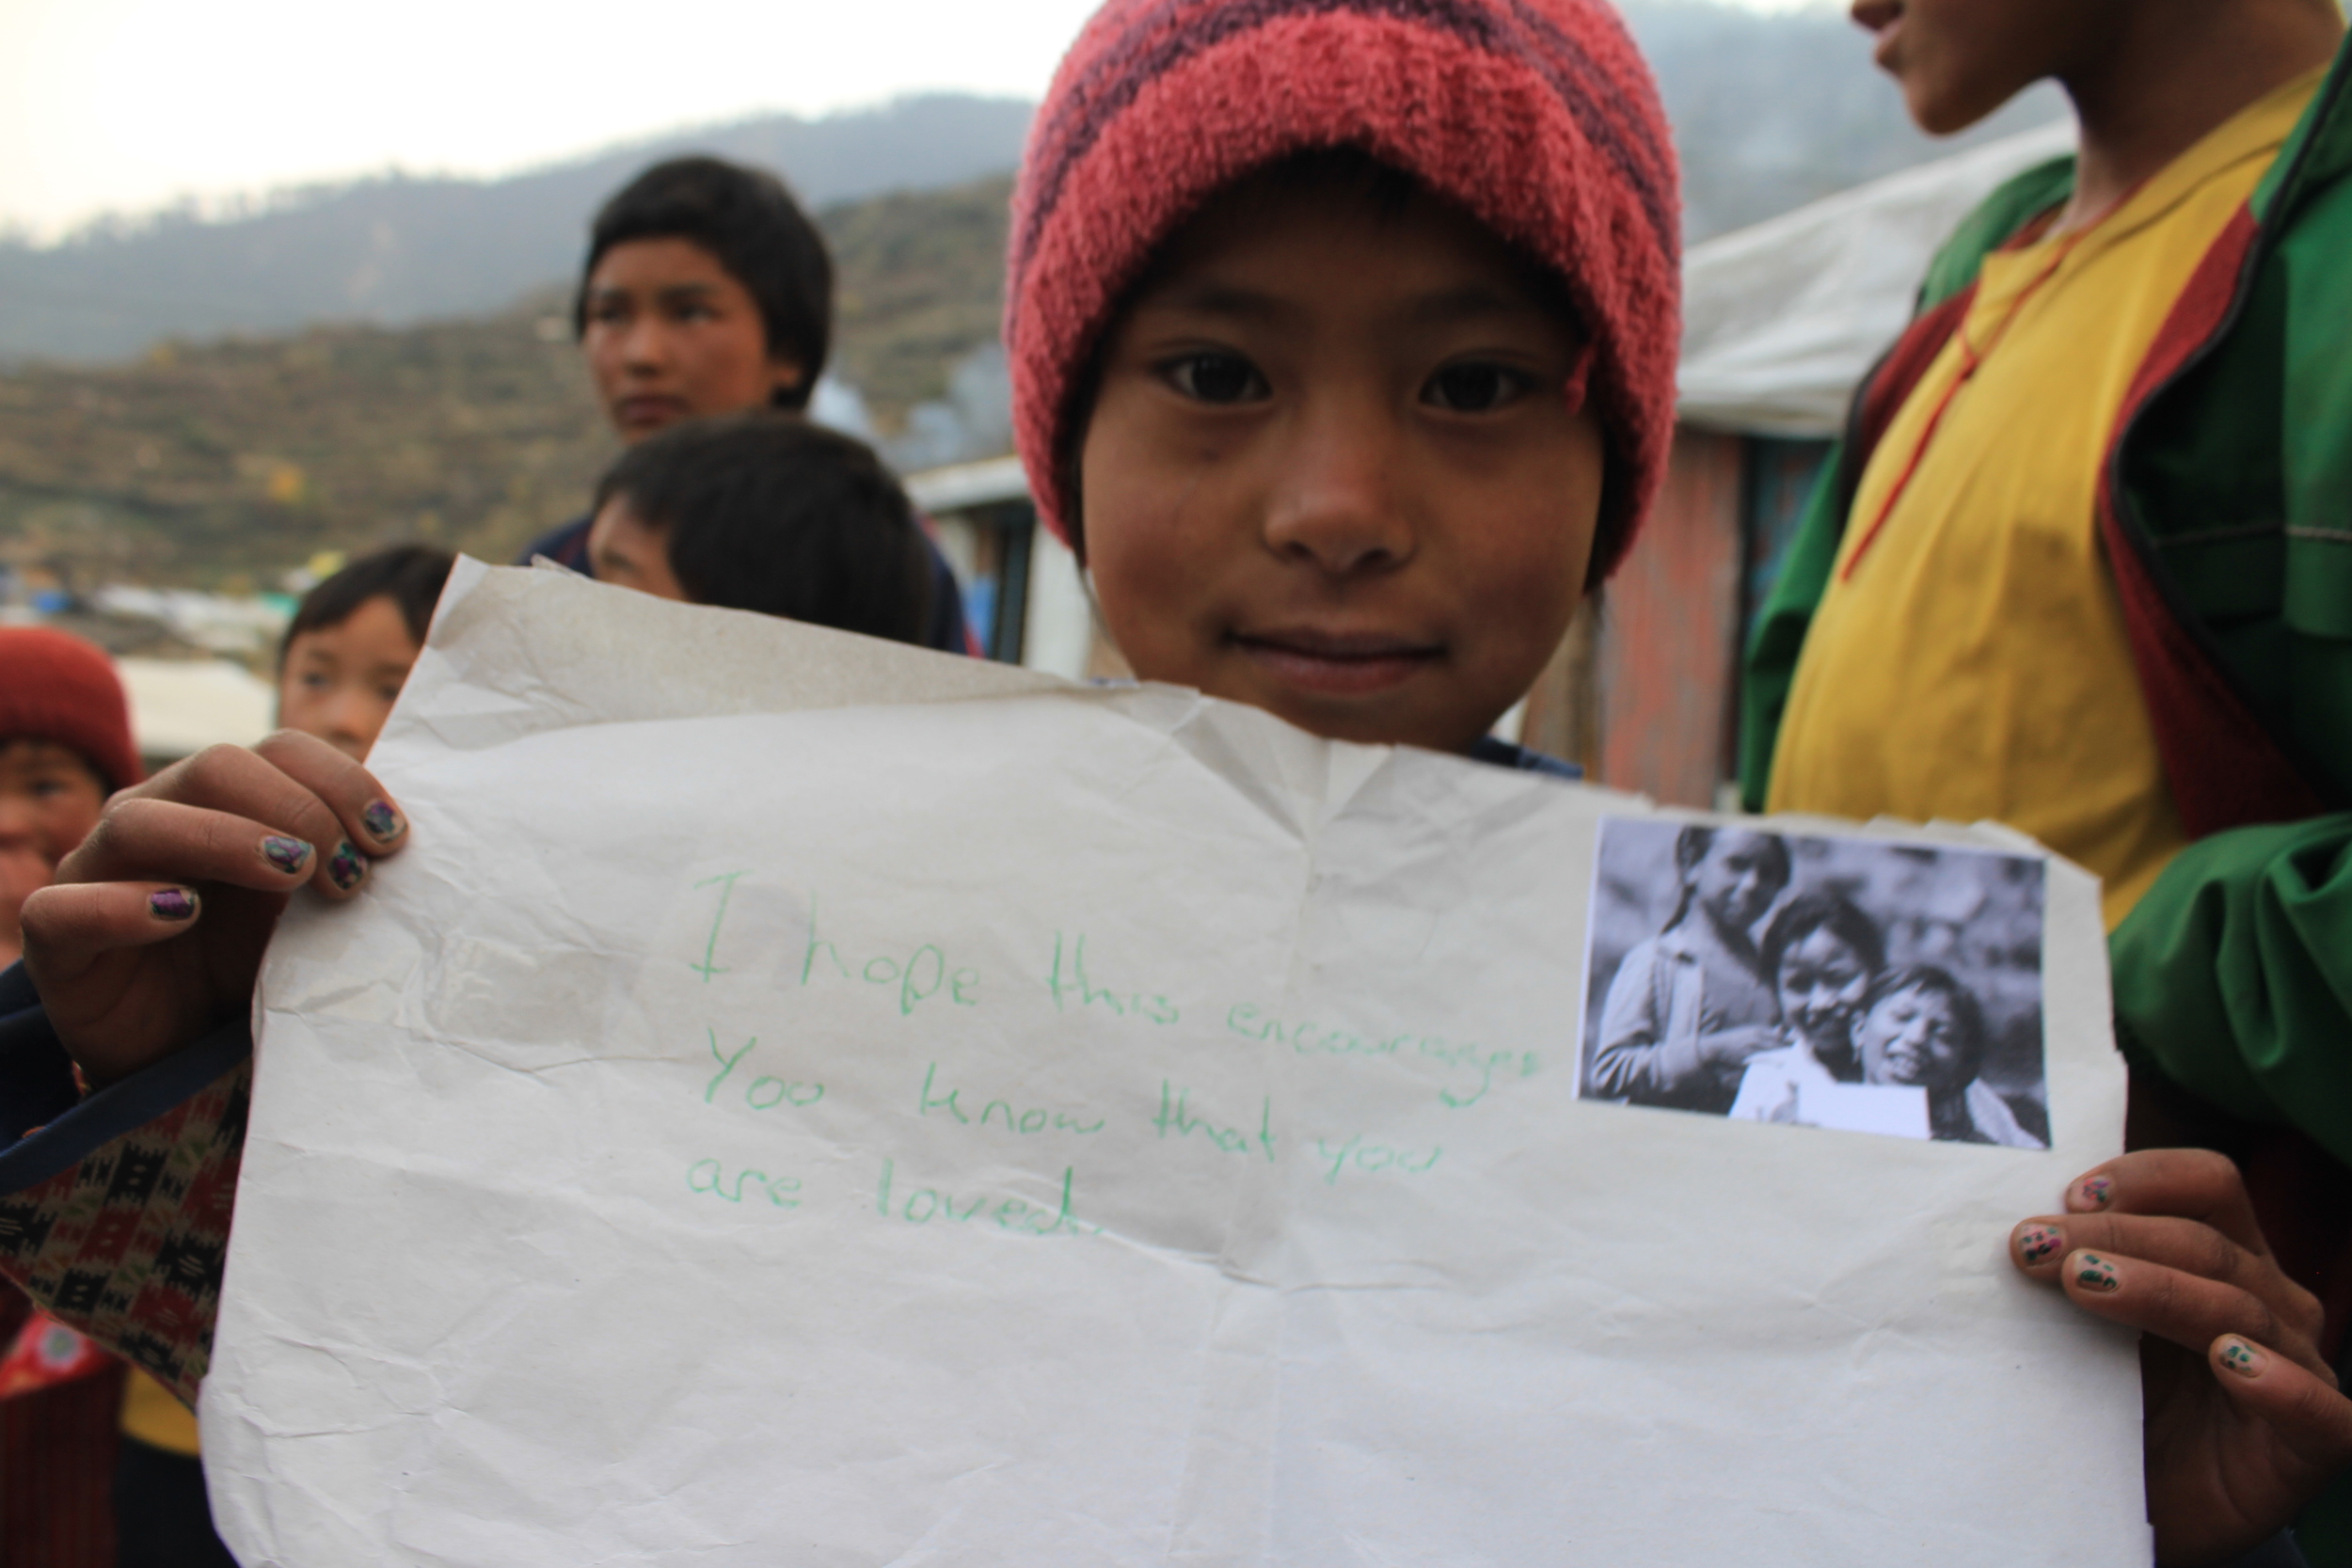 I hope this encourages
You know that you
are loved.